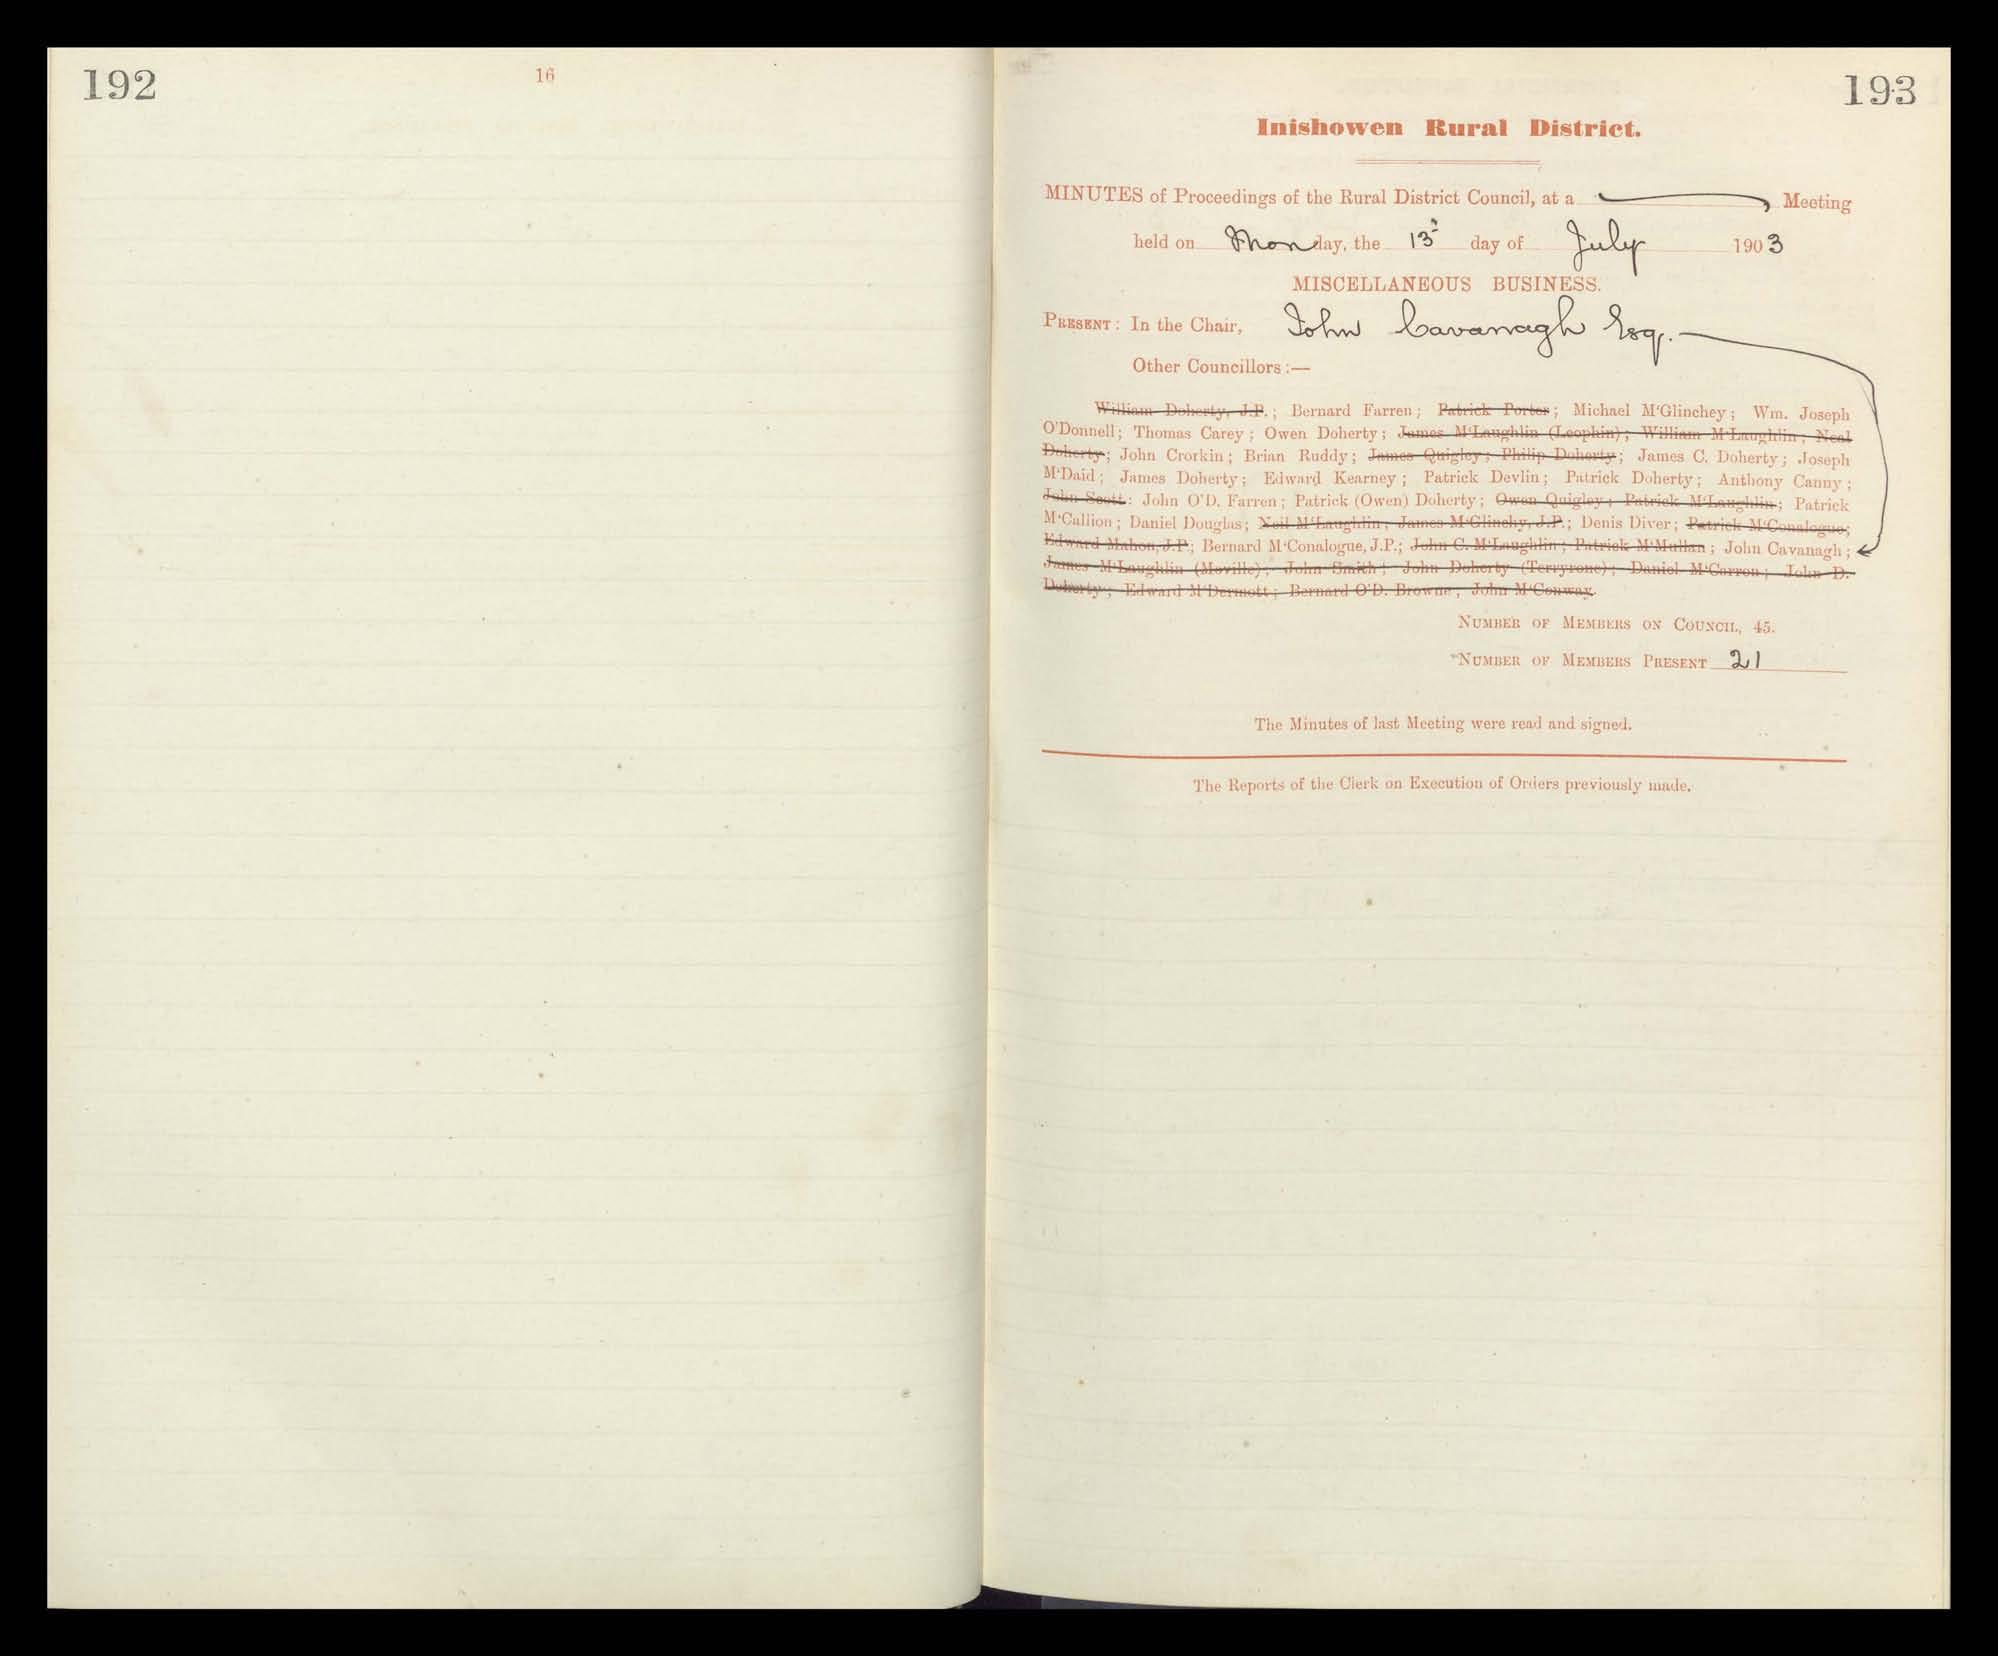 192
16
193
Inishowen Rural District.
MINUTES of Proceedings of the Rural District Council, at a Meeting
held on Monday, the 13th day of July 1903
MISCELLANEOUS BUSINESS.
PRESENT: In the Chair, John Cavanagh Esq.
Other Councillors:—
William Doherty, J.P.; Bernard Farren; Patrick Porter; Michael M'Glinchey; Wm. Joseph
O'Donnell; Thomas Carey; Owen Doherty; James M'Laughlin (Leophin); William M'Laughlin; Neal
Doherty; John Crorkin; Brian Ruddy; James Quigley; Philip Doherty; James C. Doherty; Joseph
M'Daid; James Doherty; Edward Kearney; Patrick Devlin; Patrick Doherty; Anthony Canny;
John Scott: John O'D. Farren; Patrick (Owen) Doherty; Owen Quigley; Patrick M'Laughlin; Patrick
M'Callion; Daniel Douglas; Neil M'Laughlin; James M'Glinchy, J.P.; Denis Diver; Patrick M'Conalogue;
Edward Mahon, J.P.; Bernard M'Conalogue, J.P.; John C. M'Laughlin; Patrick M'Mullan; John Cavanagh;
James M'Laughlin (Moville); John Smith; John Doherty (Terryrone); Daniel M'Carron; John D.
Doherty; Edward M'Dermott; Bernard O'D. Browne; John M'Conway.
NUMBER OF MEMBERS ON COUNCIL, 45.
NUMBER OF MEMBERS PRESENT 21
The Minutes of last Meeting were read and signed.
The Reports of the Clerk on Execution of Orders previously made.